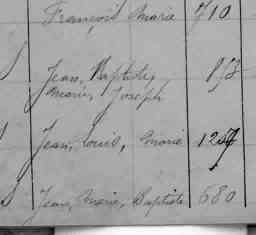 François Marie 710
Jean, Baptiste,
Marie, Joseph
Jean, Louis, Marie
Jean, Marie, Baptiste 680